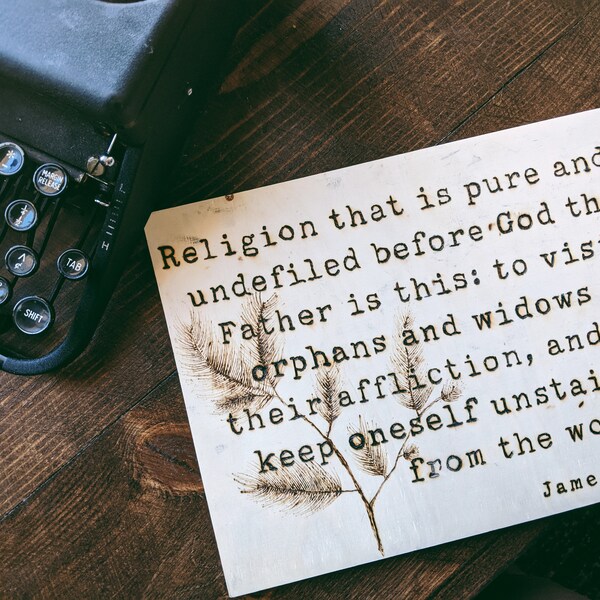 MARGIN RELEASE
TAB
SHIFT
Religion that is pure and
undefiled before God
Father is this: to
orphans and widows
their affliction, and
keep oneself
from the